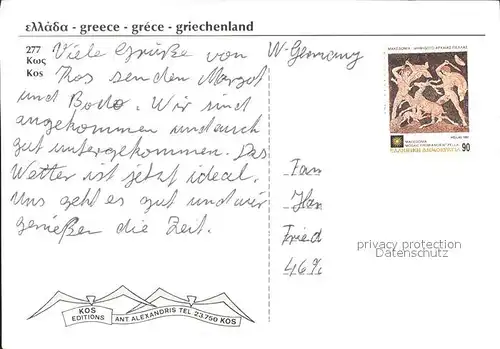 ελλάδα - greece - gréce - griechenland
277
Κως
Kos
Viele Grüße von
Kos senden Margot
und Bodo. Wir sind
angekommen und auch
gut untergekommen. Das
Wetter ist jetzt ideal.
Uns geht es gut und wir
genießen die Zeit.
KOS
EDITIONS
ANT. ALEXANDRIS TEL 23.750 KOS
W-Germany
ΕΛΛΗΝΙΚΗ ΔΗΜΟΚΡΑΤΙΑ 90
Fam
Han
Fried
46
privacy protection
Datenschutz